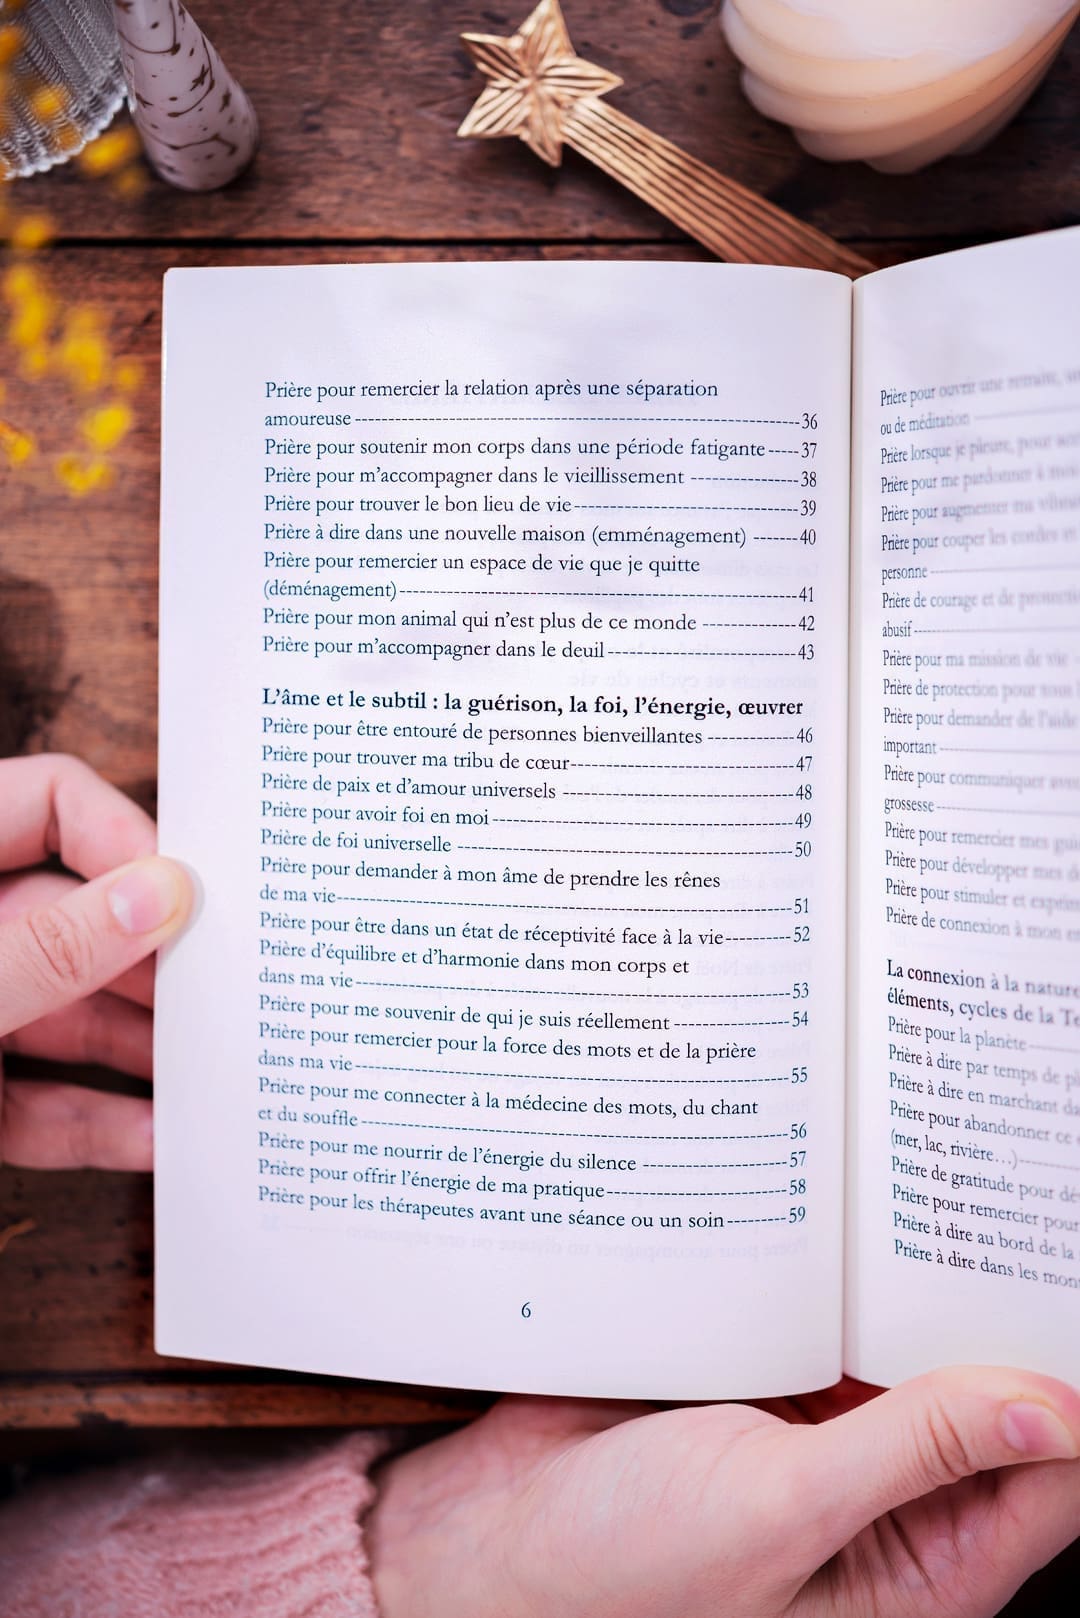 Prière pour remercier la relation après une séparation
amoureuse ---------- 36
Prière pour soutenir mon corps dans une période fatigante ----- 37
Prière pour m’accompagner dans le vieillissement ---------- 38
Prière pour trouver le bon lieu de vie ---------- 39
Prière à dire dans une nouvelle maison (emménagement) ------- 40
Prière pour remercier un espace de vie que je quitte
(déménagement) ---------- 41
Prière pour mon animal qui n’est plus de ce monde ---------- 42
Prière pour m’accompagner dans le deuil ---------- 43
L’âme et le subtil : la guérison, la foi, l’énergie, œuvrer
Prière pour être entouré de personnes bienveillantes ---------- 46
Prière pour trouver ma tribu de cœur ---------- 47
Prière de paix et d’amour universels ---------- 48
Prière pour avoir foi en moi ---------- 49
Prière de foi universelle ---------- 50
Prière pour demander à mon âme de prendre les rênes
de ma vie ---------- 51
Prière pour être dans un état de réceptivité face à la vie ---------- 52
Prière d’équilibre et d’harmonie dans mon corps et
dans ma vie ---------- 53
Prière pour me souvenir de qui je suis réellement ---------- 54
Prière pour remercier pour la force des mots et de la prière
dans ma vie ---------- 55
Prière pour me connecter à la médecine des mots, du chant
et du souffle ---------- 56
Prière pour me nourrir de l’énergie du silence ---------- 57
Prière pour offrir l’énergie de ma pratique ---------- 58
Prière pour les thérapeutes avant une séance ou un soin --------- 59
6
Prière pour ouvrir une retraite,
ou de méditation
Prière lorsque je pleure, pour
Prière pour me pardonner à
Prière pour augmenter ma
Prière pour couper les cordes et
personne
Prière de courage et de
abusif
Prière pour ma mission de vie
Prière de protection pour
Prière pour demander de l’aide
important
Prière pour communiquer avec
grossesse
Prière pour remercier mes
Prière pour développer mes
Prière pour stimuler et
Prière de connexion à mon
La connexion à la nature
éléments, cycles de la
Prière pour la planète
Prière à dire par temps de
Prière à dire en marchant
Prière pour abandonner ce
(mer, lac, rivière…)
Prière de gratitude pour
Prière pour remercier pour
Prière à dire au bord de la
Prière à dire dans les